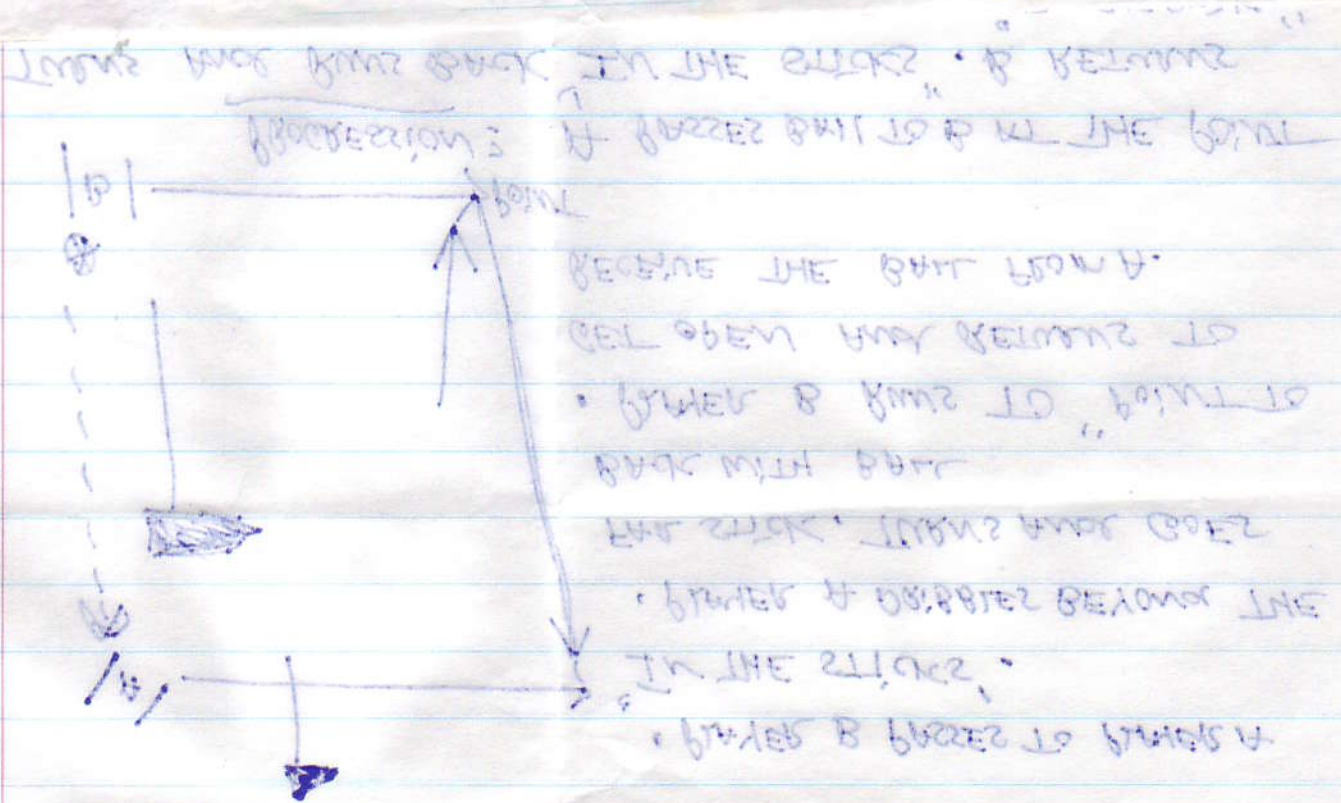 • PLAYER B PASSES TO PLAYER A
"IN THE STICKS".
A
• PLAYER A DRIBBLES BEYOND THE
FAR STICK. TURNS AND GOES
BACK WITH BALL
• PLAYER B RUNS TO "POINT" TO
GET OPEN AND RETURNS TO
RECEIVE THE BALL FROM A.
B
POINT
PROGRESSION: A PASSES BALL TO B AT THE POINT
TURNS AND RUNS BACK "IN THE STICKS". B RETURNS